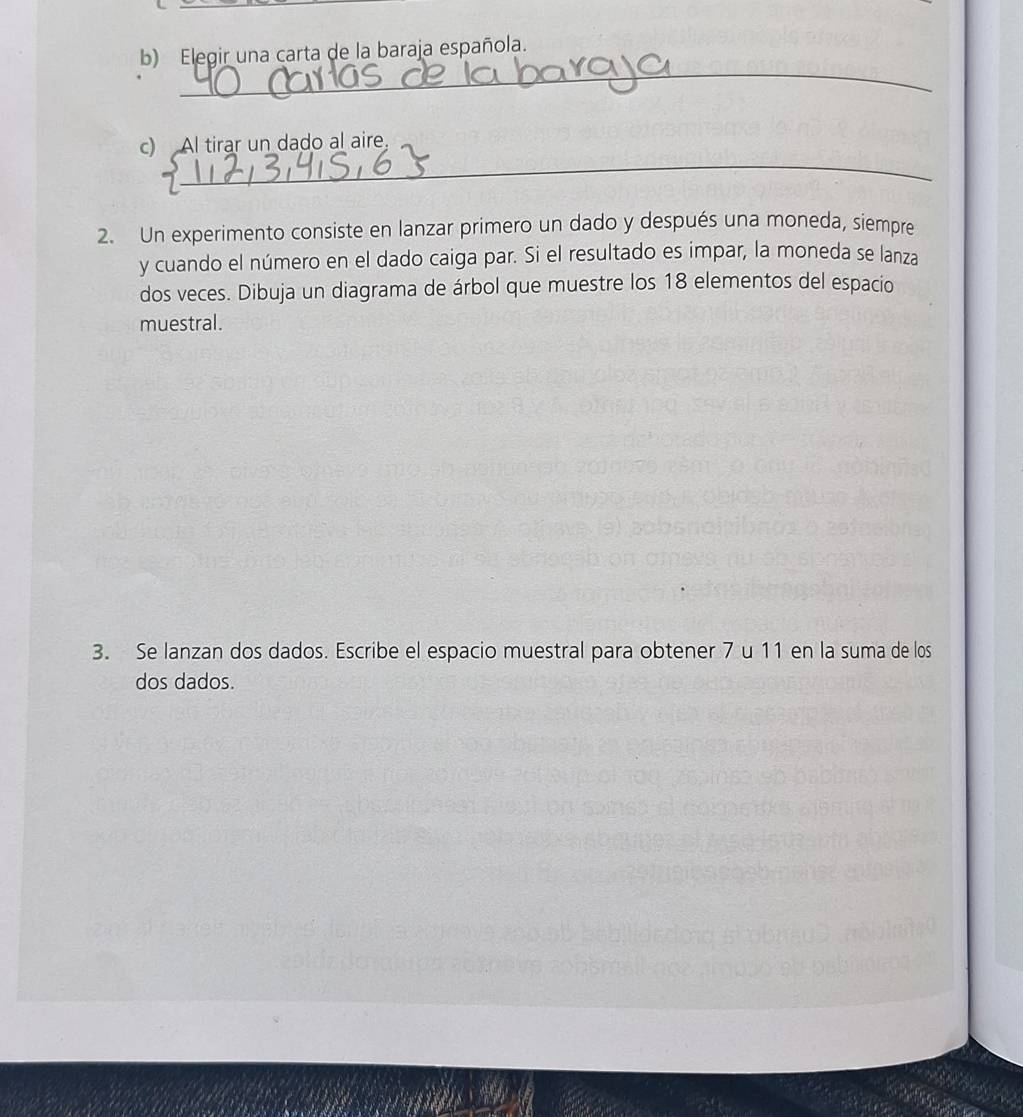 b) Elegir una carta de la baraja española.
40 cartas de la baraja
c) Al tirar un dado al aire.
{1,2,3,4,5,6}
2. Un experimento consiste en lanzar primero un dado y después una moneda, siempre
y cuando el número en el dado caiga par. Si el resultado es impar, la moneda se lanza
dos veces. Dibuja un diagrama de árbol que muestre los 18 elementos del espacio
muestral.
3. Se lanzan dos dados. Escribe el espacio muestral para obtener 7 u 11 en la suma de los
dos dados.